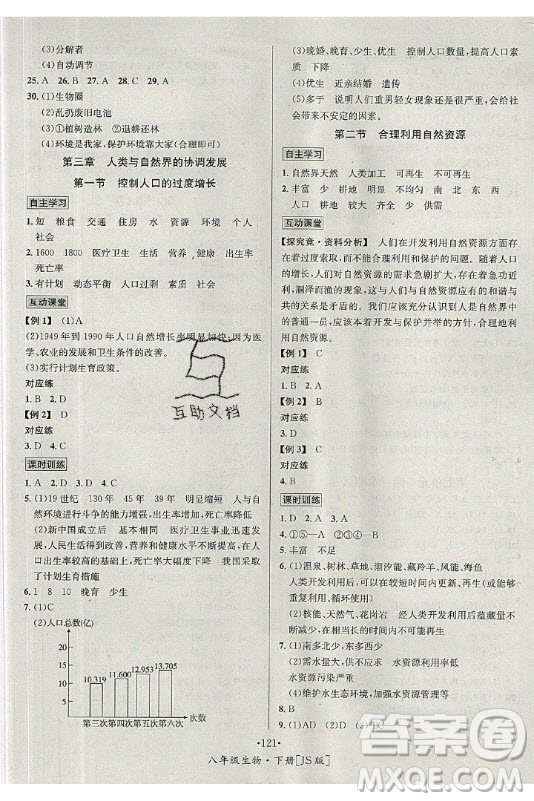 (3)分解者
(4)自动调节
25. A 26. B 27. A 28. C 29. A
30. (1)生物圈
(2)乱扔废旧电池
(3)①植树造林 ②自然保护区
(4)环境是我家,保护环境靠大家(合理即可)
第三章 人类与自然界的协调发展
第一节 控制人口的过度增长
自主学习
1. 短 粮食 交通 住房 水 资源 环境 个人
社会
2. 1600 1800 医疗卫生 生活 营养 健康 出生率
死亡率
3. 有计划 动态平衡 人口过剩 社会
互动课堂
【例1】(1)A
(2)1949年到1990年人口自然增长率明显加快,因为医
学、农业的发展和卫生条件的改善。
(3)实行计划生育政策。
对应练
1. B 2. D
【例2】 D
对应练
3. D 4. C
课时训练
1. A 2. D 3. C 4. D
5. (1)19世纪 130年 45年 39年 明显缩短 人与自
然环境进行斗争的能力增强,出生率增加、死亡率降低
(2)新中国成立后 基本相同 医疗卫生事业的发展,
人民生活得到了提高,改善了营养和健康状况,人口的
出生率较高 出生率略下降,死亡率大幅下降 我国采取
了计划生育措施
6. 1 10 晚育 少生
7. (1)C
(2)人口总数(亿)
20
15
10
5
10.319 11.600 12.953 13.705
第三次第四次第五次第六次 次数
(3)晚婚、晚育、少生、优生 控制人口数量,提高人口素
质 下降
(4)优生 近亲结婚 遗传
(5)多于 多数人重男轻女现象还是很严重,这样会带
来不安定的因素。
第二节 合理利用自然资源
自主学习
1. 自然界 天然 人工 可再生 不可再生
2. 丰富 少 耕地 明显 不均匀 南 北 东 西
人口 耕地 供给 大
互动课堂
【探究竟·资料分析】 人们在开发利用自然资源方面存
在着过度索取、不合理利用等问题。随着人类数量的增
长,人们对自然资源的需求急剧扩大,存在着急功近
利、重发展轻保护的思想。现有的自然资源与人类和谐
共的关系是矛盾的。我们应该本着自己是自然界中的
普通一员,应该本着开发与保护并举的方针,合理开发
利用自然资源。
【例1】 C
对应练
1. B 2. A
【例2】 C
对应练
3. B 4. D
课时训练
1. B 2. D 3. A
4. (1)②③④ (2)①⑤
5. 丰富 不足
6. (1)温泉、树、石楠、潮汐能、藏羚羊、野鸭、泉水
人类开发利用后,可以在较短时间内再生(或者可以反
复利用、循环使用)
(2)核能、天然气、花岗岩 经人类开发利用后蕴藏量
不断减少,在较长时间内不可恢复
7. (1)南多北少,东多西少。
(2)需水量大,供应不足 水资源利用不合理
水资源污染严重
(4)维护水生态环境,加强水资源的管理。
8. B
9. (1)D (2)A
·121·
八年级生物·下册[JS版]
互助文档
作业精灵